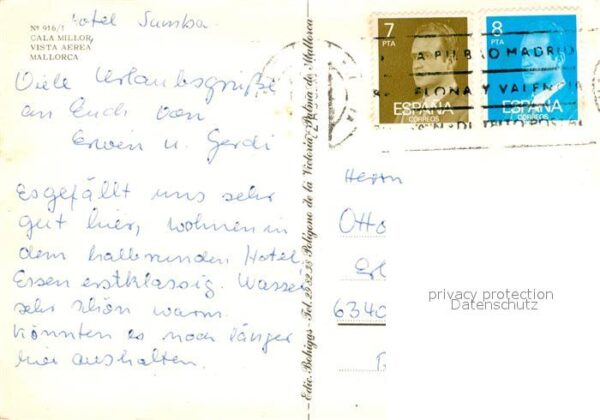 Hotel Samba
Nº 916/1
CALA MILLOR
VISTA AEREA
MALLORCA
Viele Urlaubsgrüße
an Euch von
Erwin u. Gerdi
Es gefällt uns sehr
gut hier, wohnen in
dem halbrunden Hotel
Essen erstklassig. Wasser
sehr schön warm.
Könnten es noch länger
hier aushalten.
Edic. Bohigas - Tel. 25 32 38 Poligono de la Victoria - Palma de Mallorca
7
PTA
ESPAÑA
CORREOS
8
PTA
ESPAÑA
CORREOS
BILBAO MADRID
ELONA Y VALENCIA
Herrn
Otto
6340
privacy protection
Datenschutz